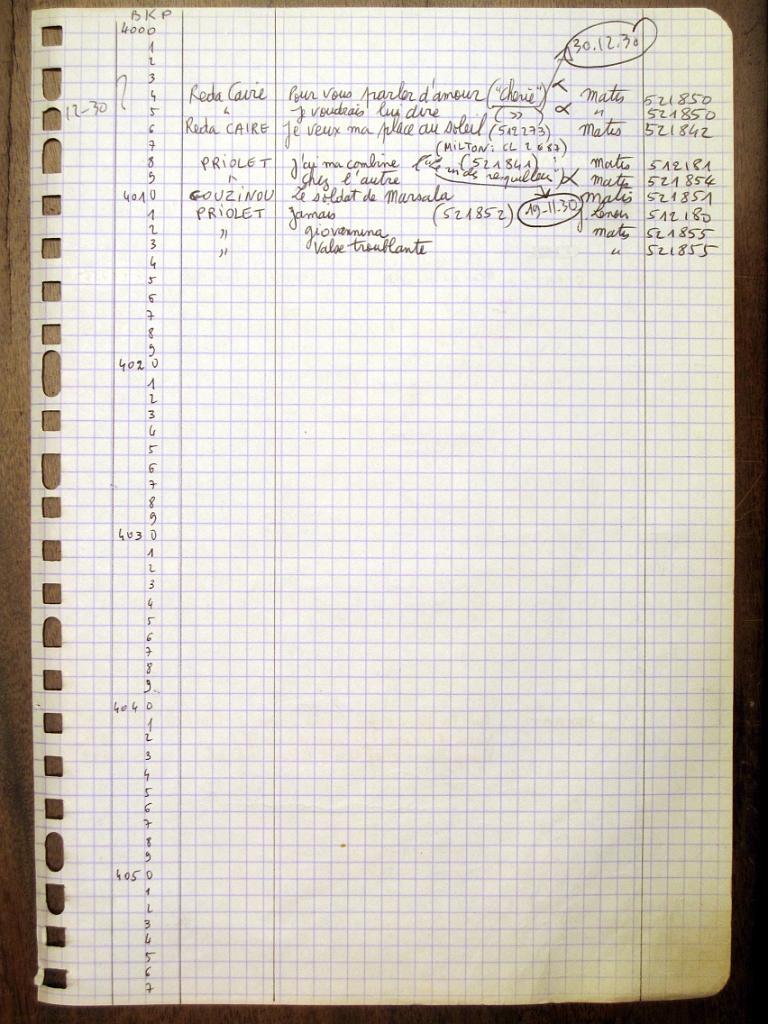 BKP
4000 30.12.30
1
2
3
4 Reda Caire Pour vous parler d'amour ("Chérie") ∝ Matis 521850
12-30 5 " Je voudrais lui dire ( " ) ∝ " 521850
6 Reda CAIRE Je veux ma place au soleil (512273) Matis 521842
7 (MILTON: CL 2687)
8 PRIOLET J'ai ma combine (521841) Matis 512181
9 " Chez l'autre ∝ Matis 521854
4010 GOUZINOU Le soldat de Marsala Matis 521851
1 PRIOLET Jamais (521852) 19-11-30 Lenoir 512180
2 " giovannina Matis 521855
3 " Valse troublante " 521855
4
5
6
7
8
9
4020
1
2
3
4
5
6
7
8
9
4030
1
2
3
4
5
6
7
8
9
4040
1
2
3
4
5
6
7
8
9
4050
1
2
3
4
5
6
7